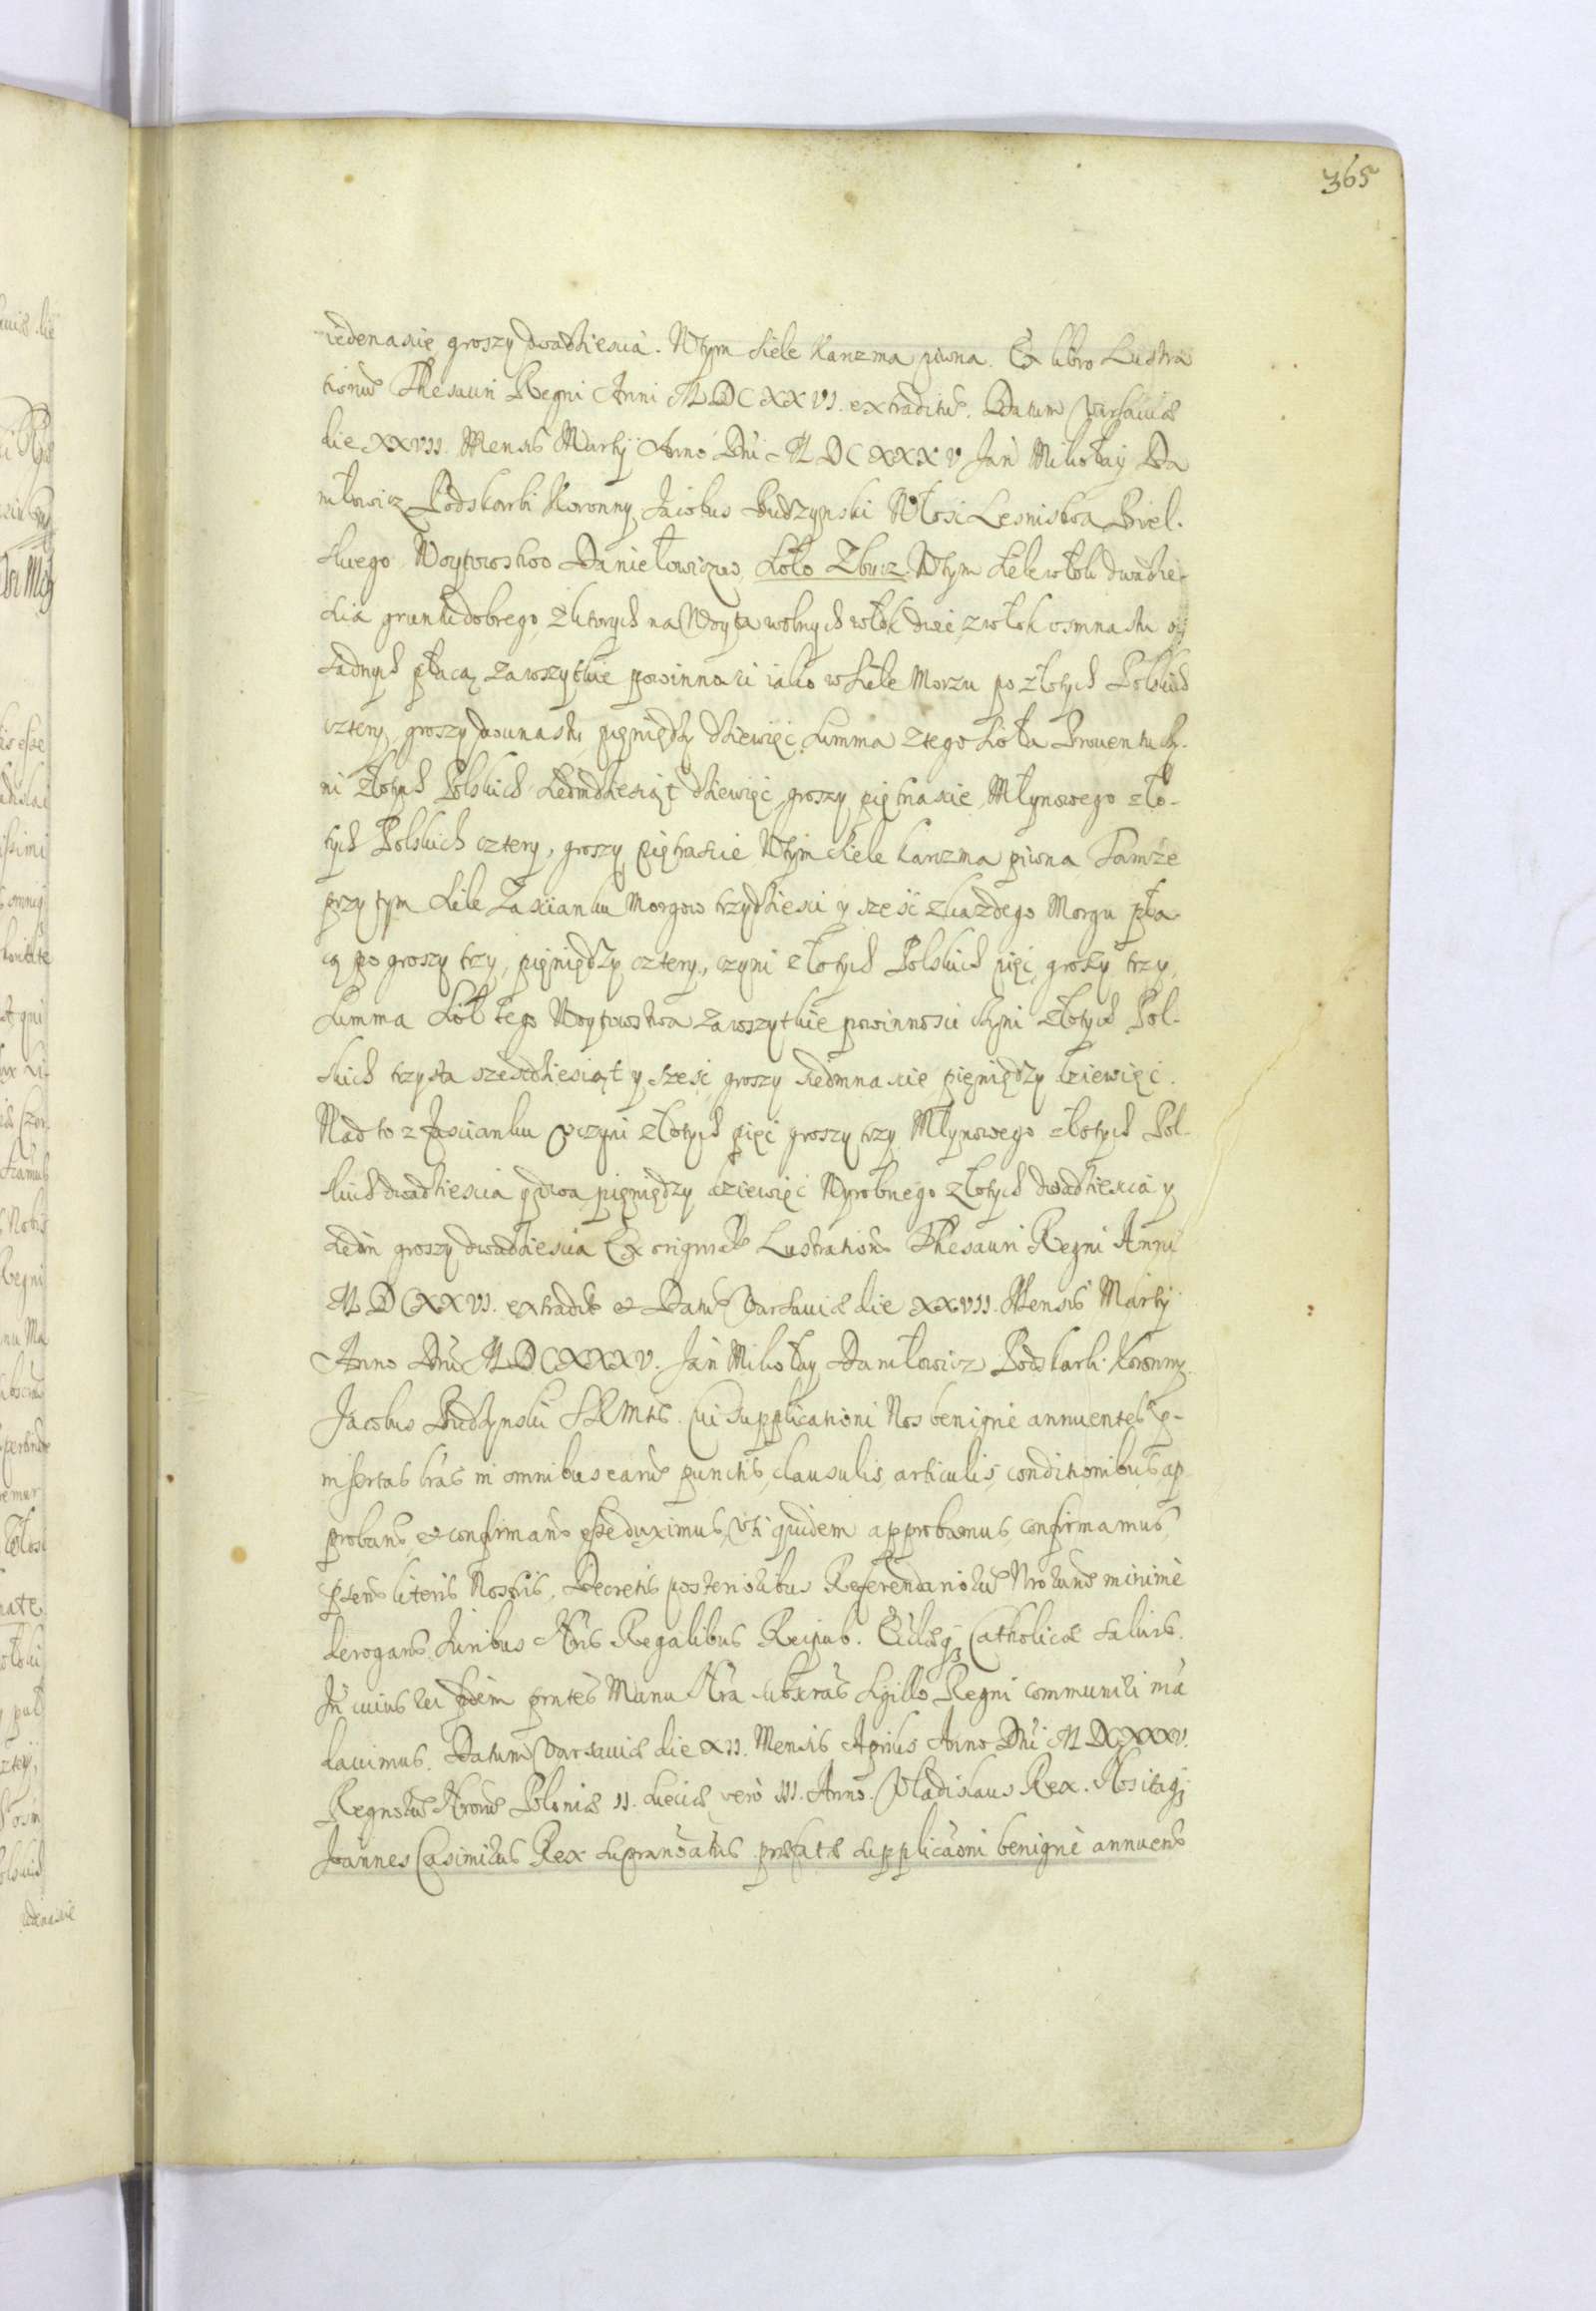 365
iedenascie groszy dwadziescia. Wtym Siele Karczma piwna. Ex libro Lustra
tionum Thesauri Regni Anni MDCXXVI. extraditum. Datum Varsaviæ
die XXVII. Mensis Martij Anno Dni MDCXXXV Jan Mikołay Da
niłowicz Podskarbi Koronny Jacobus Budzynski Włosci Lesnistwa Biel.
skiego Woytowstwo Daniełowiczow, Sioło Zbucz. Wtym Siele włok dwadzie-
scia gruntu dobrego, zktorych na Woyta wolnych włok dwie, zwłok osmnastu o
sadnych płacą za wszytkie powinnosci iako w Siele Morzu po złotych Polskich
cztery, groszy dwunastu pięniędzy dziewięć, Summa ztego Sioła Proventu cży-
ni złotych Polskich Siedmdziesiąt dziewięć, groszy piętnascie, Młynowego zło-
tych Polskich cztery, groszy piętnascie Wtym Siele karczma piwna Tamże
przy tym Siele Zascianku Morgow trzydziesci y szesć zkażdego Morgu pła-
cą po groszy trzy, pięniędzy cztery, czyni złotych Polskich pięć, groszy trzy,
Summa Sioł tego Woytowstwa za wszytkie powinnosci czyni złotych Pol-
skich trzysta szesćdziesiąt y szesc groszy siedmnascie pięniędzy dziewięć.
Nad to z Zascianku uczyni złotych pięć groszy trzy Młynowego złotych Pol-
skich dwadziescia y dwa pięniędzy dziewięć Wyrobnego złotych dwadziescia y
Jedin groszy dwadziescia Ex originali Lustrationis Thesauri Regni Anni
MDCXXVI. extradit et Datum Varsaviæ die XXVII. Mensis Martij
Anno Dni MDCXXXV. Jan Mikołay Daniłowicz Podskarbi Koronny.
Jacobus Budzynski SRMtis. Cui supplicationi Nos benigne annuentes
insertas lras in omnibus earum punctis, clausulis, articulis, conditionibus ap
probans et confirmans esse duximus, uti quidem approbamus, confirmamus,
literis Nostris, Decretis posterioribus Referendariorum Nrorum minime
derogans Juribus Nris Regalibus Reipub. Eccląq Catholicæ salvis.
In cuius rei fidem prntes Manu Nra subscras Sigillo Regni communiri mã
davimus. Datum Varsaviæ die XII. Mensis Aprilis Anno Dni MDCXXXV.
Regnorum Nrorum Poloniæ II. Sueciæ vero III. Anno. Vladislaus Rex. Nos itaq
Joannes Casimirus Rex supranoatus præfatæ supplicaoni benigne annuens